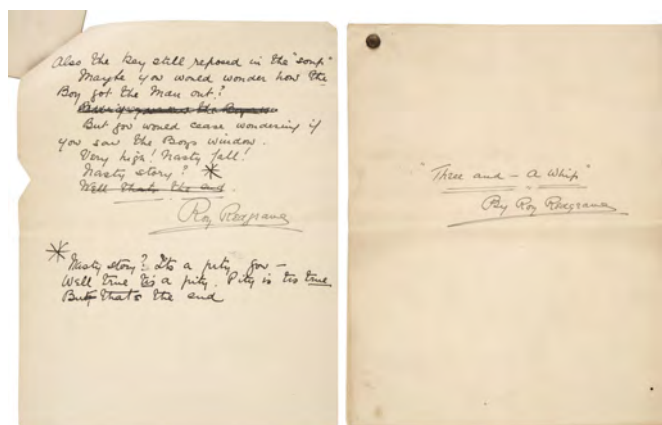 Also the key still reposed in the "soup"
Maybe you would wonder how the
Boy got the Man out?
But you would cease wondering if
you saw the Boys window.
Very high! Nasty fall!
Nasty story? *
Well thats the end.
Roy Redgrave
* Nasty story? Its a pity you –
Well true tis a pity. Pity is tis true
But thats the end
"Three and – A Whip"
By Roy Redgrave